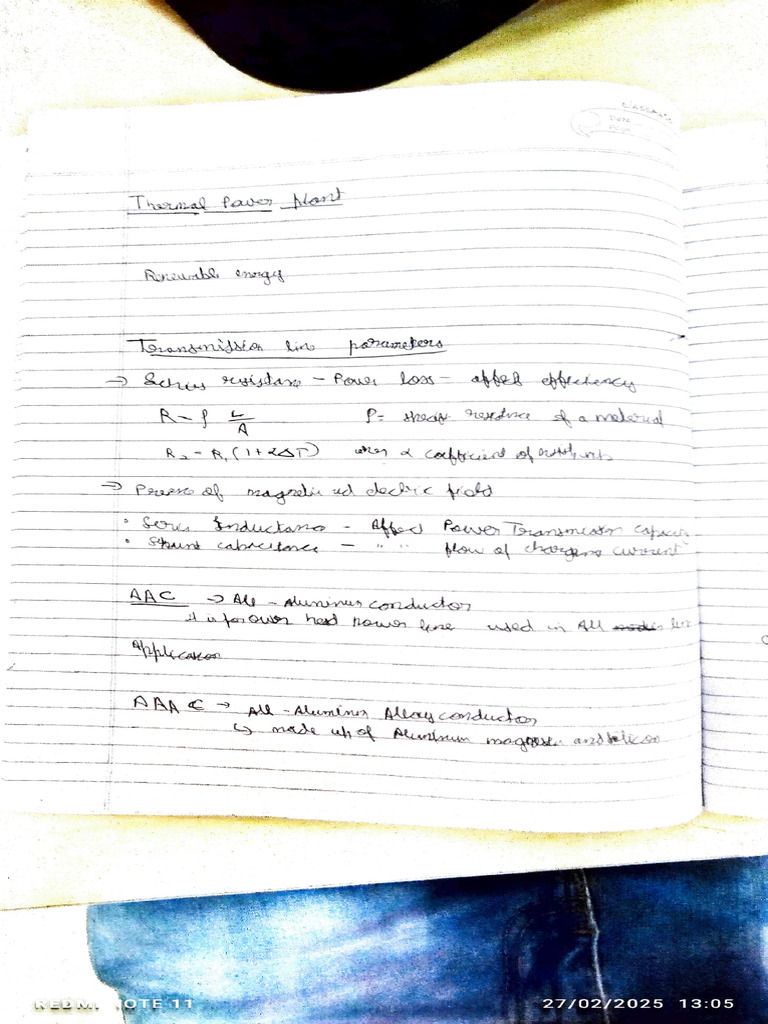 classmate
Date
Page
Thermal Power plant
Renewable energy
Transmission line parameters
→ Series resistance - Power loss - affect efficiency
R = ρ L/A ρ = resistance of a material
R₂ = R₁ (1 + αΔT) when α coefficient of
→ Presence of magnetic and electric field
• Series Inductance - Affect Power Transmission
• Shunt capacitance - " " flow of charging current
AAC → All - Aluminum conductor
It is for over head power line used in All
Application
AAAC → All - Aluminum Alloy conductor
↳ made up of Aluminum and silicon
REDMI NOTE 11
27/02/2025 13:05